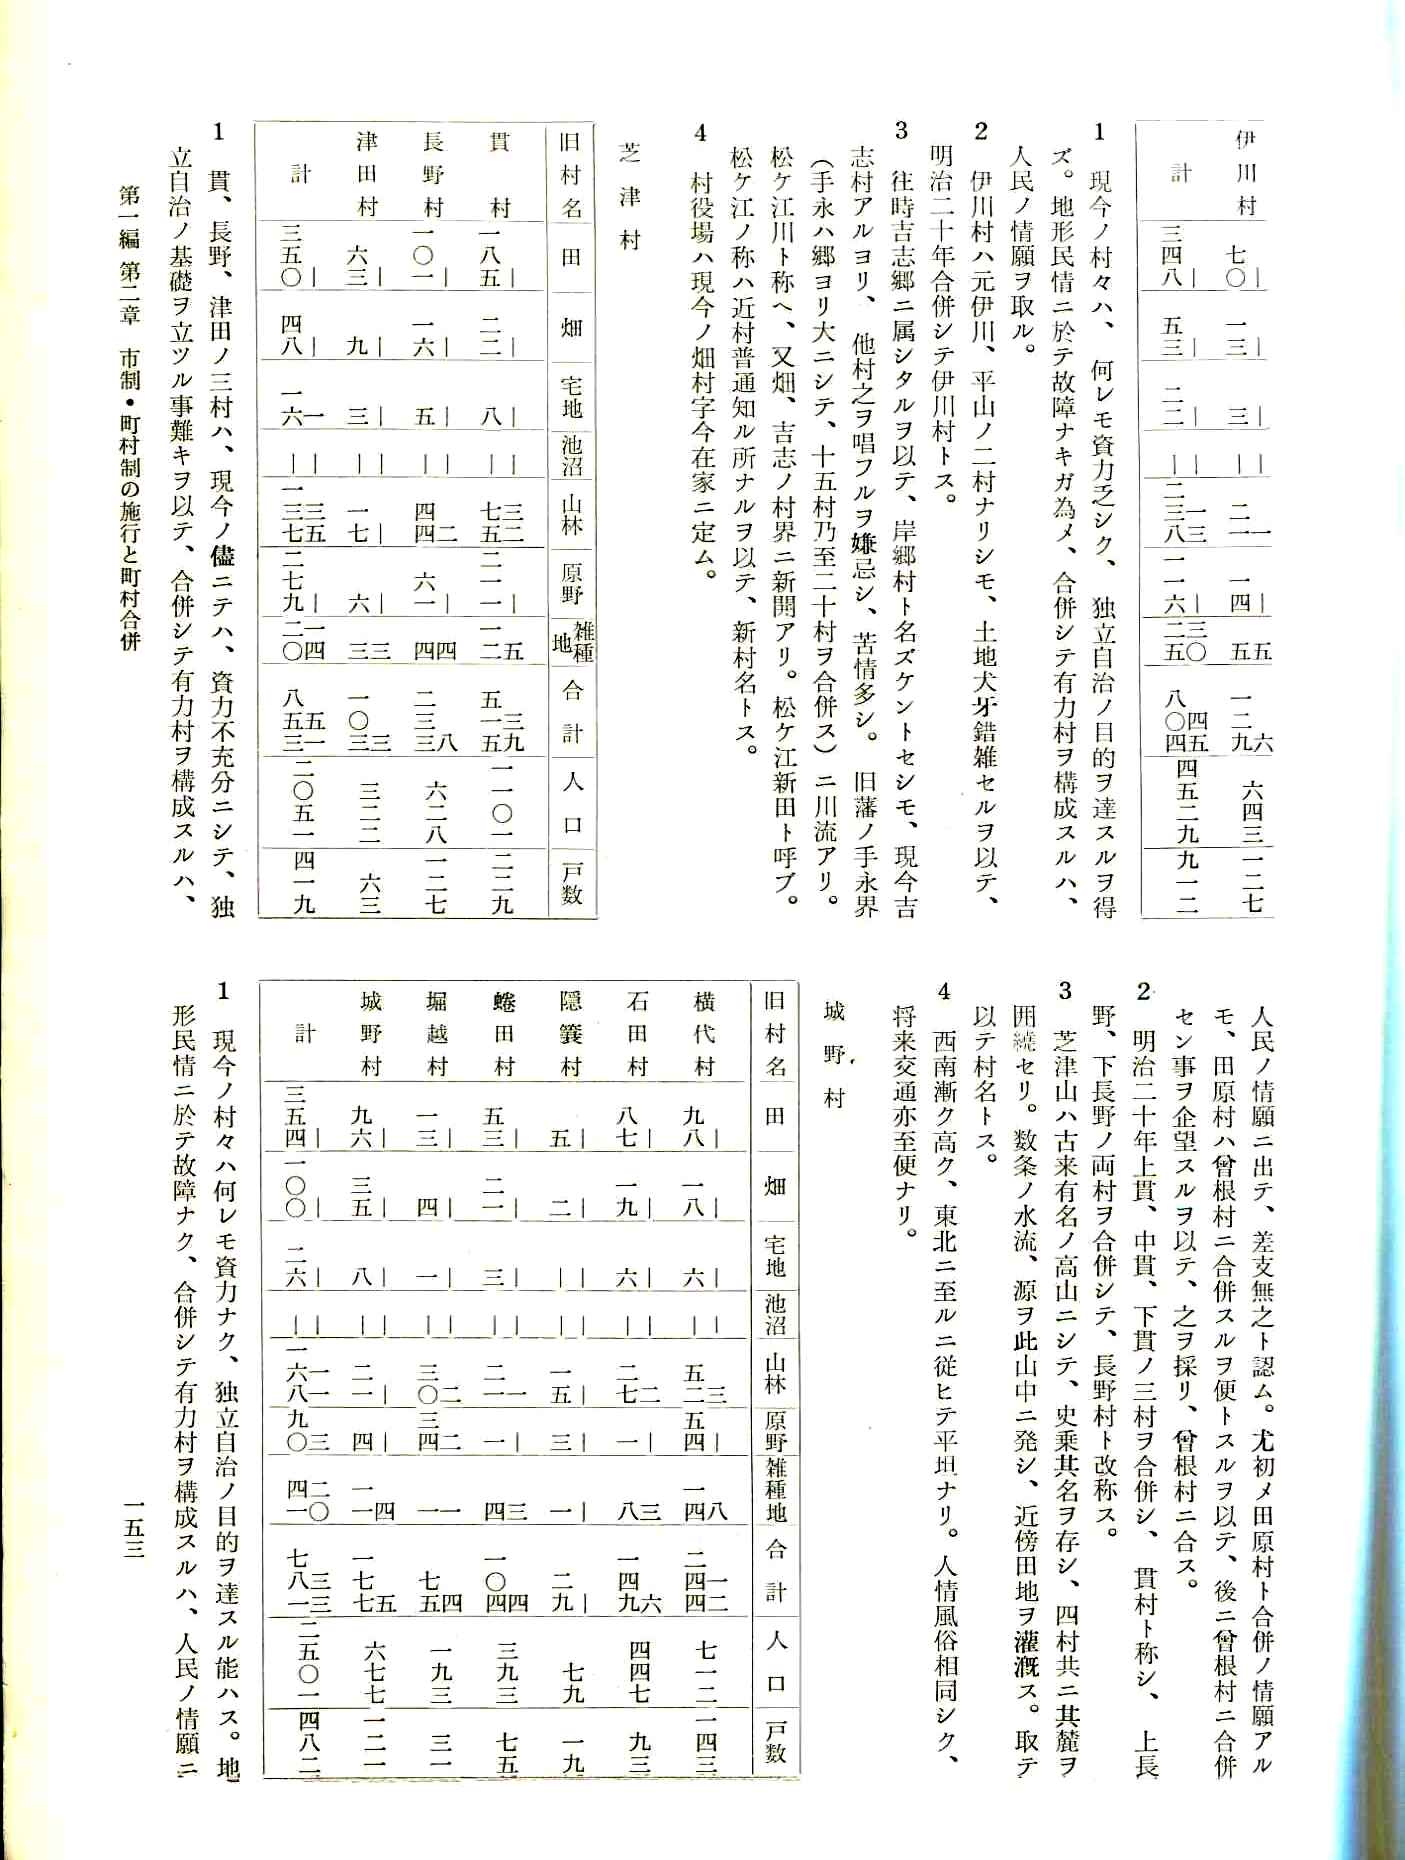 伊川村 七〇｜ 一三｜ 三｜ ｜｜ 二一 一 一四｜ 五 五 一二九 六 六四三 一二七
計 三四八｜ 五三｜ 二二｜ ｜｜ 二三八 一三 一一六｜ 二五 三〇 八〇四 四五 四五二九 九一二
1 現今ノ村々ハ、何レモ資力乏シク、独立自治ノ目的ヲ達スルヲ得
ズ。地形民情ニ於テ故障ナキガ為メ、合併シテ有力村ヲ構成スルハ、
人民ノ情願ヲ取ル。
2 伊川村ハ元伊川、平山ノ二村ナリシモ、土地犬牙錯雑セルヲ以テ、
明治二十年合併シテ伊川村トス。
3 往時吉志郷ニ属シタルヲ以テ、岸郷村ト名ズケントセシモ、現今吉
志村アルヨリ、他村之ヲ唱フルヲ嫌忌シ、苦情多シ。旧藩ノ手永界
（手永ハ郷ヨリ大ニシテ、十五村乃至二十村ヲ合併ス）ニ川流アリ。
松ケ江川ト称ヘ、又畑、吉志ノ村界ニ新開アリ。松ケ江新田ト呼ブ。
松ケ江ノ称ハ近村普通知ル所ナルヲ以テ、新村名トス。
4 村役場ハ現今ノ畑村字今在家ニ定ム。
芝津村
旧村名 田 畑 宅地 池沼 山林 原野 雑種地 合計 人口 戸数
貫村 一八五｜ 二二｜ 八｜ ｜｜ 七五 三二 二一一｜ 一二 五 五一五 三九 一一〇一 二二九
長野村 一〇一｜ 一六｜ 五｜ ｜｜ 四四 二 六一｜ 四 四 二三三 八 六二八 一二七
津田村 六三｜ 九｜ 三｜ ｜｜ 一七｜ 六｜ 三 三 一〇三 三 三二二 六三
計 三五〇｜ 四八｜ 一六 一 ｜｜ 一三七 三五 二七九｜ 二〇 一四 八五三 五一 二〇五一 四一九
1 貫、長野、津田ノ三村ハ、現今ノ儘ニテハ、資力不充分ニシテ、独
立自治ノ基礎ヲ立ツル事難キヲ以テ、合併シテ有力村ヲ構成スルハ、
人民ノ情願ニ出テ、差支無之ト認ム。尤初メ田原村ト合併ノ情願アル
モ、田原村ハ曾根村ニ合併スルヲ便トスルヲ以テ、後ニ曾根村ニ合併
セン事ヲ企望スルヲ以テ、之ヲ採リ、曾根村ニ合ス。
2 明治二十年上貫、中貫、下貫ノ三村ヲ合併シ、貫村ト称シ、上長
野、下長野ノ両村ヲ合併シテ、長野村ト改称ス。
3 芝津山ハ古来有名ノ高山ニシテ、史乗其名ヲ存シ、四村共ニ其麓ヲ
囲繞セリ。数条ノ水流、源ヲ此山中ニ発シ、近傍田地ヲ灌漑ス。取テ
以テ村名トス。
4 西南漸ク高ク、東北ニ至ルニ従ヒテ平坦ナリ。人情風俗相同シク、
将来交通亦至便ナリ。
城野村
旧村名 田 畑 宅地 池沼 山林 原野 雑種地 合計 人口 戸数
横代村 九八｜ 一八｜ 六｜ ｜｜ 五二 三 五四｜ 一四 八 二四四 一二 七一二 一四三
石田村 八七｜ 一九｜ 六｜ ｜｜ 二七 二 一｜ 八 三 一四九 六 四四七 九三
隠簑村 五｜ 二｜ ｜｜ ｜｜ 一五｜ 三｜ 一｜ 二九｜ 七九 一九
蜷田村 五三｜ 二一｜ 三｜ ｜｜ 二一 一 一｜ 四 三 一〇四 四 三九三 七五
堀越村 一三｜ 四｜ 一｜ ｜｜ 三〇 二 三四 二 一 一 七五 四 一九三 三一
城野村 九六｜ 三五｜ 八｜ ｜｜ 二一｜ 四｜ 一一 四 一七七 五 六七七 一二一
計 三五四｜ 一〇〇｜ 二六｜ ｜｜ 一六八 一一 九〇 三 四一 二〇 七八一 三三 二五〇一 四八二
1 現今ノ村々ハ何レモ資力ナク、独立自治ノ目的ヲ達スル能ハス。地
形民情ニ於テ故障ナク、合併シテ有力村ヲ構成スルハ、人民ノ情願ニ
第一編 第二章 市制・町村制の施行と町村合併
一五三